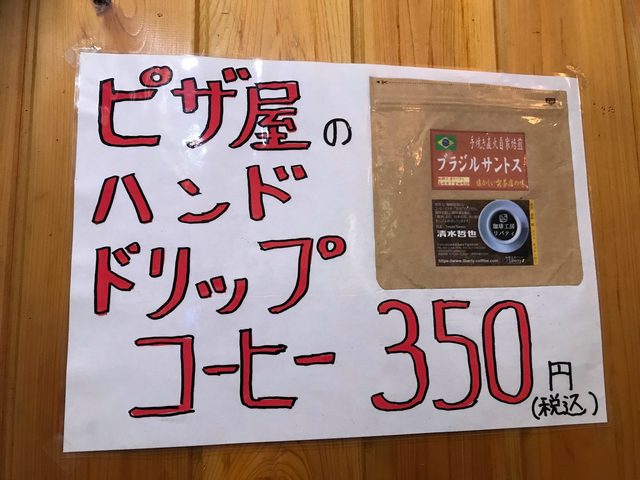 ピザ屋の
ハンド
ドリップ
コーヒー 350円
(税込)
手焼き直火自家焙煎
ブラジルサントス
懐かしい喫茶店の味
珈琲工房
リバティ
清水哲也
https://www.liberty-coffee.com